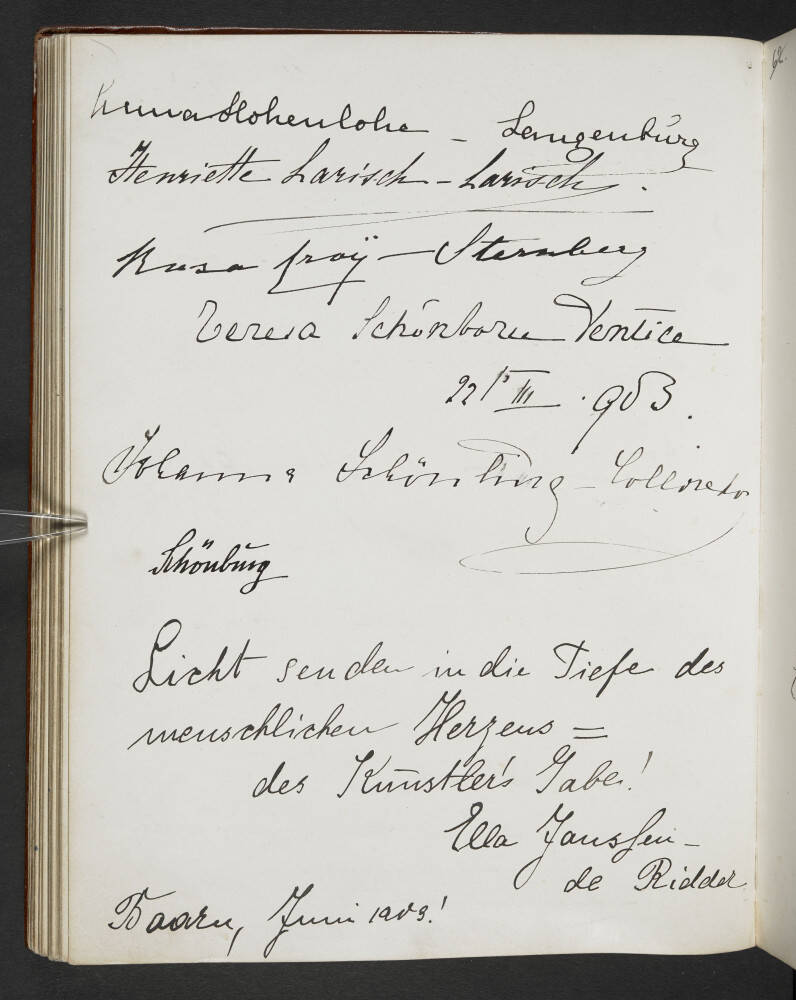 Anna Hohenlohe - Langenburg
Henriette Larisch - Larisch.
Rusa - Sternberg
Teresa Schönborn
22/III. 903.
Johanna Schönburg - Colloredo
Schönburg
Licht senden in die Tiefe des
menschlichen Herzens =
des Künstler's Gabe!
Ella Janssen -
de Ridder
Baarn, Juni 1903!
62.